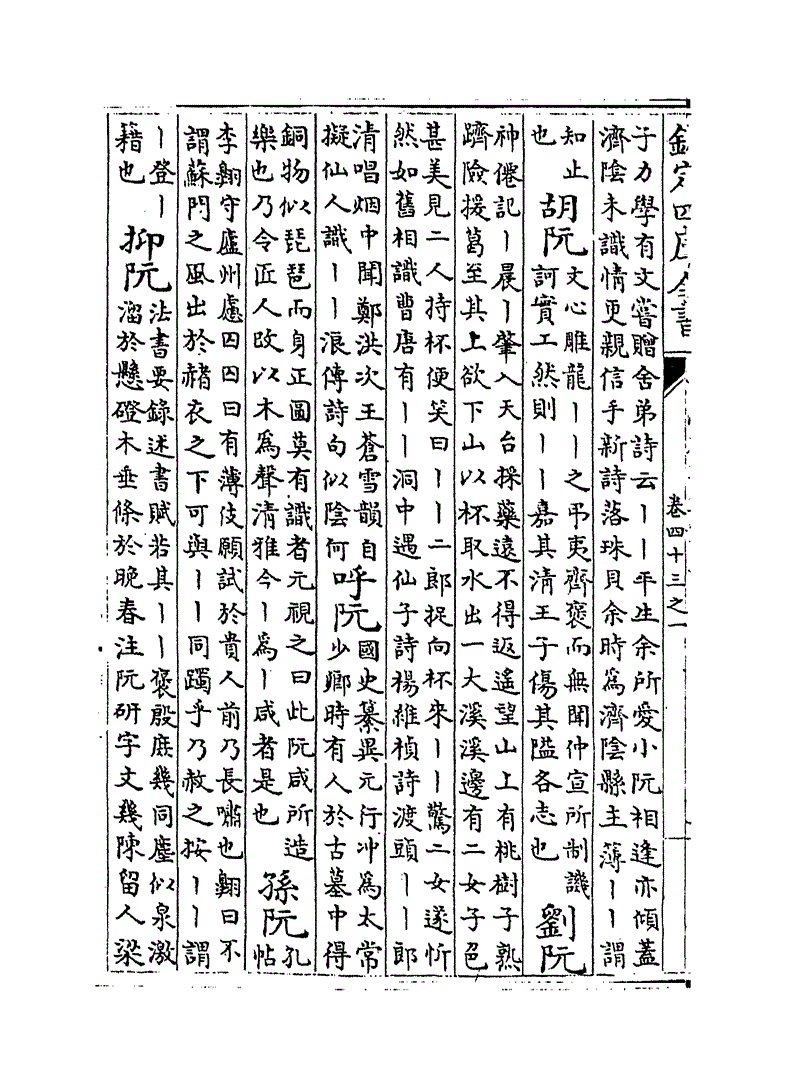 欽定四庫全書
卷四十三之一
子力學有文嘗贈舍弟詩云丨丨平生余所愛小阮相逢亦傾蓋
濟陰未識情更親信手新詩落珠貝余時為濟陰縣主薄丨丨謂
知止
也
胡阮
文心雕龍丨丨之弔夷齊褒而無聞仲宣所制譏
訶實工然則丨丨嘉其清王子傷其隘各志也
劉阮
神僊記丨晨丨肇入天台採藥遠不得返遙望山上有桃樹子熟
躋險援葛至其上欲下山以杯取水出一大溪溪邊有二女子色
甚美見二人持杯便笑曰丨丨二郎捉向杯來丨丨驚二女遂忻
然如舊相識曹唐有丨丨洞中遇仙子詩楊維楨詩渡頭丨丨郎
清唱烟中聞鄭洪次王蒼雪韻自
擬仙人識丨丨浪傳詩句似陰何
呼阮
國史纂異元行冲為太常
少卿時有人於古墓中得
銅物似琵琶而身正圓莫有識者元視之曰此阮咸所造
樂也乃令匠人改以木為聲清雅今丨為丨咸者是也
孫阮
孔
帖
李翺守廬州慮囚囚曰有薄伎願試於貴人前乃長嘯也翺曰不
謂蘇門之風出於赭衣之下可與丨丨同躅乎乃赦之按丨丨謂
丨登丨
籍也
抑阮
法書要錄述書賦若其丨丨褒殷庶幾同塵似泉激
溜於懸磴木垂條於晚春注阮研字文幾陳留人梁